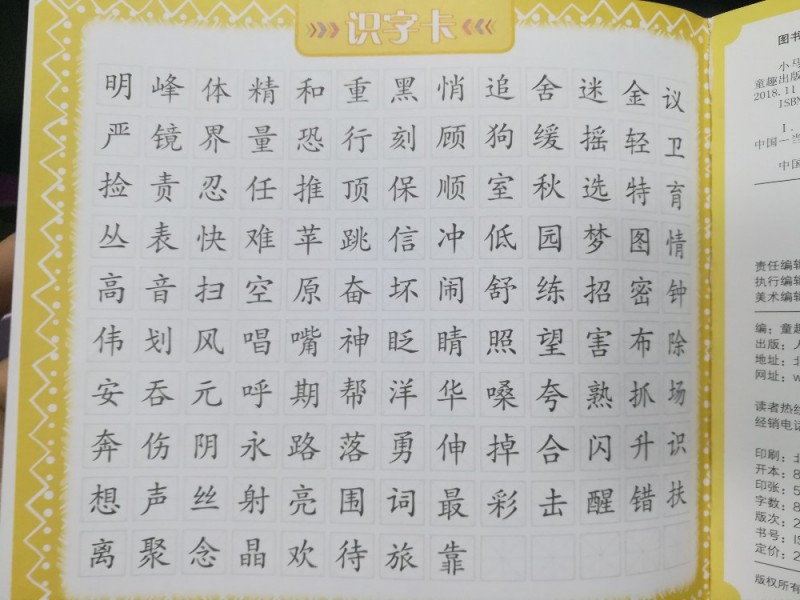 识字卡
明峰体精和重黑悄追舍迷金议
严镜界量恐行刻顾狗缓摇轻卫
捡责忍任推顶保顺室秋选特育
丛表快难苹跳信冲低园梦图情
高音扫空原奋坏闹舒练招密钟
伟划风唱嘴神眨睛照望害布除
安吞元呼期帮洋华嗓夸熟抓场
奔伤阴永路落勇伸掉合闪升识
想声丝射亮围词最彩击醒错扶
离聚念晶欢待旅靠
图书
小马
童趣出版
2018.11
ISBN
1.
中国—当
中国
责任编辑
执行编辑
美术编辑
编：童趣
出版：人
地址：北
网址：w
读者热线
经销电话
印刷：北
开本：8
印张：5
字数：8
版次：2
书号：IS
定价：2
版权所有